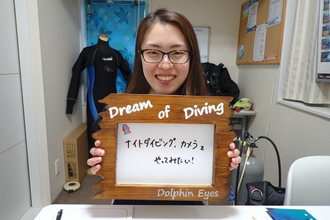 Dream of Diving
ナイトダイビング、カメラを
やってみたい!
Dolphin Eyes